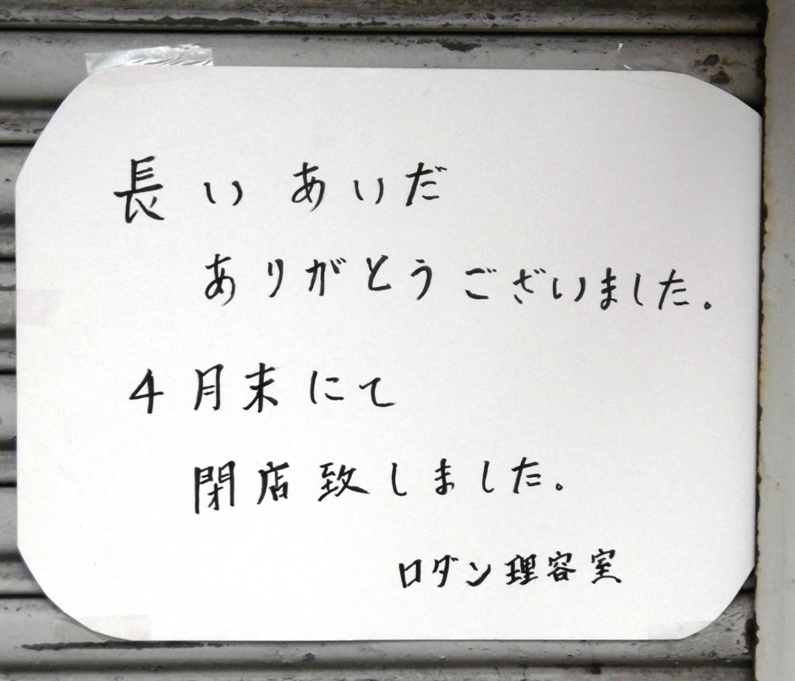 長いあいだ
ありがとうございました。
4月末にて
閉店致しました。
ロダン理容室